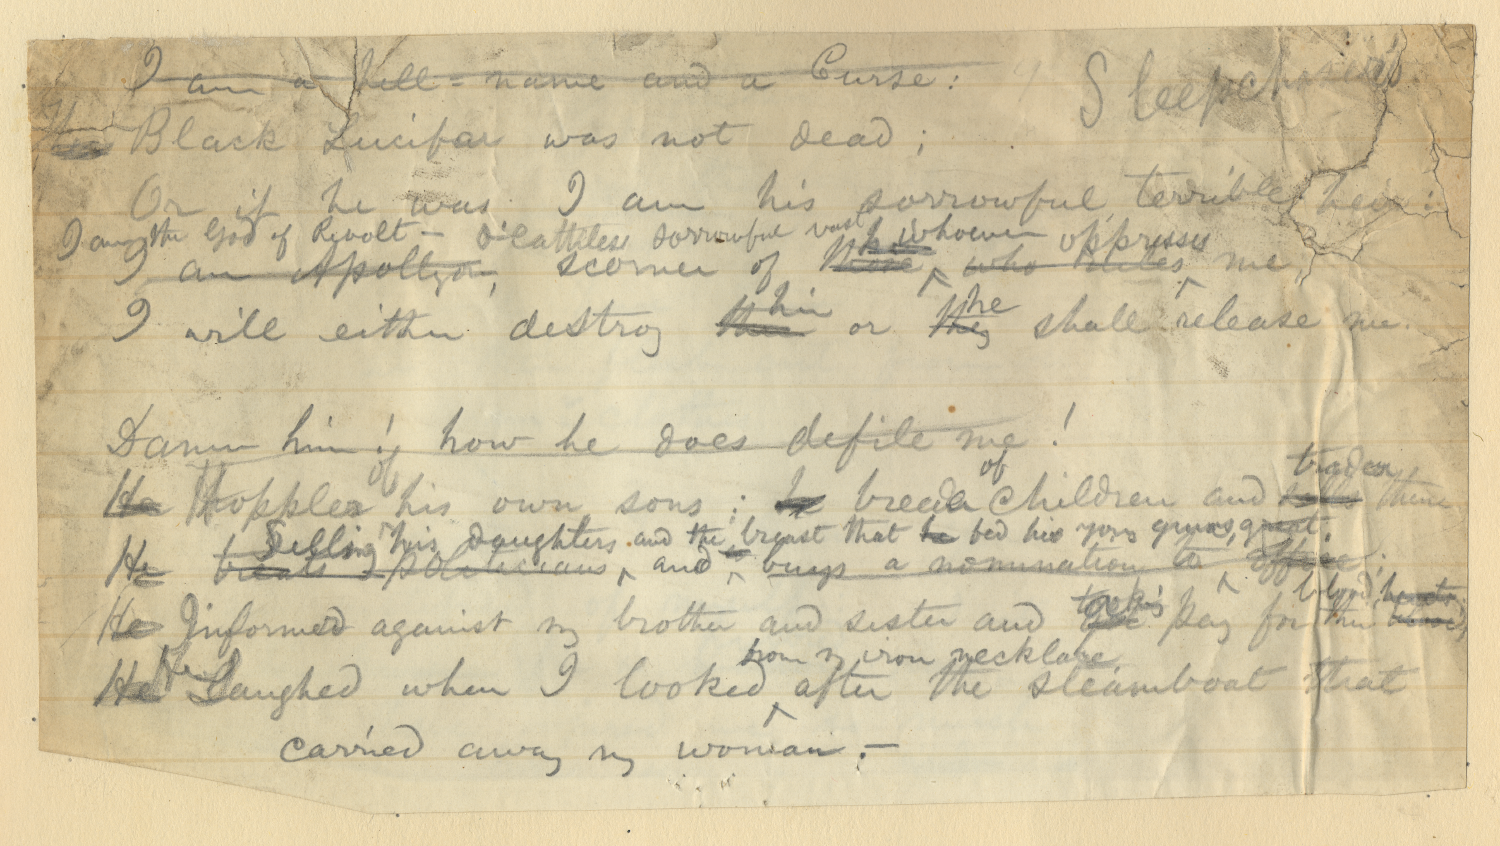 I am a hell-name and a Curse:
Sleepchasers.
Black Lucifar was not dead;
Or if he was I am his sorrowful terrible heir:
I am the God of Revolt— deathless sorrowful vast
his whoever oppresses
I am Apollyon, scorner of those who rules me,
him he
I will either destroy them or they shall release me.
Damn him! how he does defile me!
of of trades in
He Hoppler his own sons; he breeds children and sells them
Selling his daughters and the breast that he fed his young
He treats politicians, and buys a nomination to office;
takes blood, hearts
He Informed against my brother and sister and got pay for their blood,
He
from my iron necklace,
He Laughed when I looked after the steamboat that
carried away my woman.—